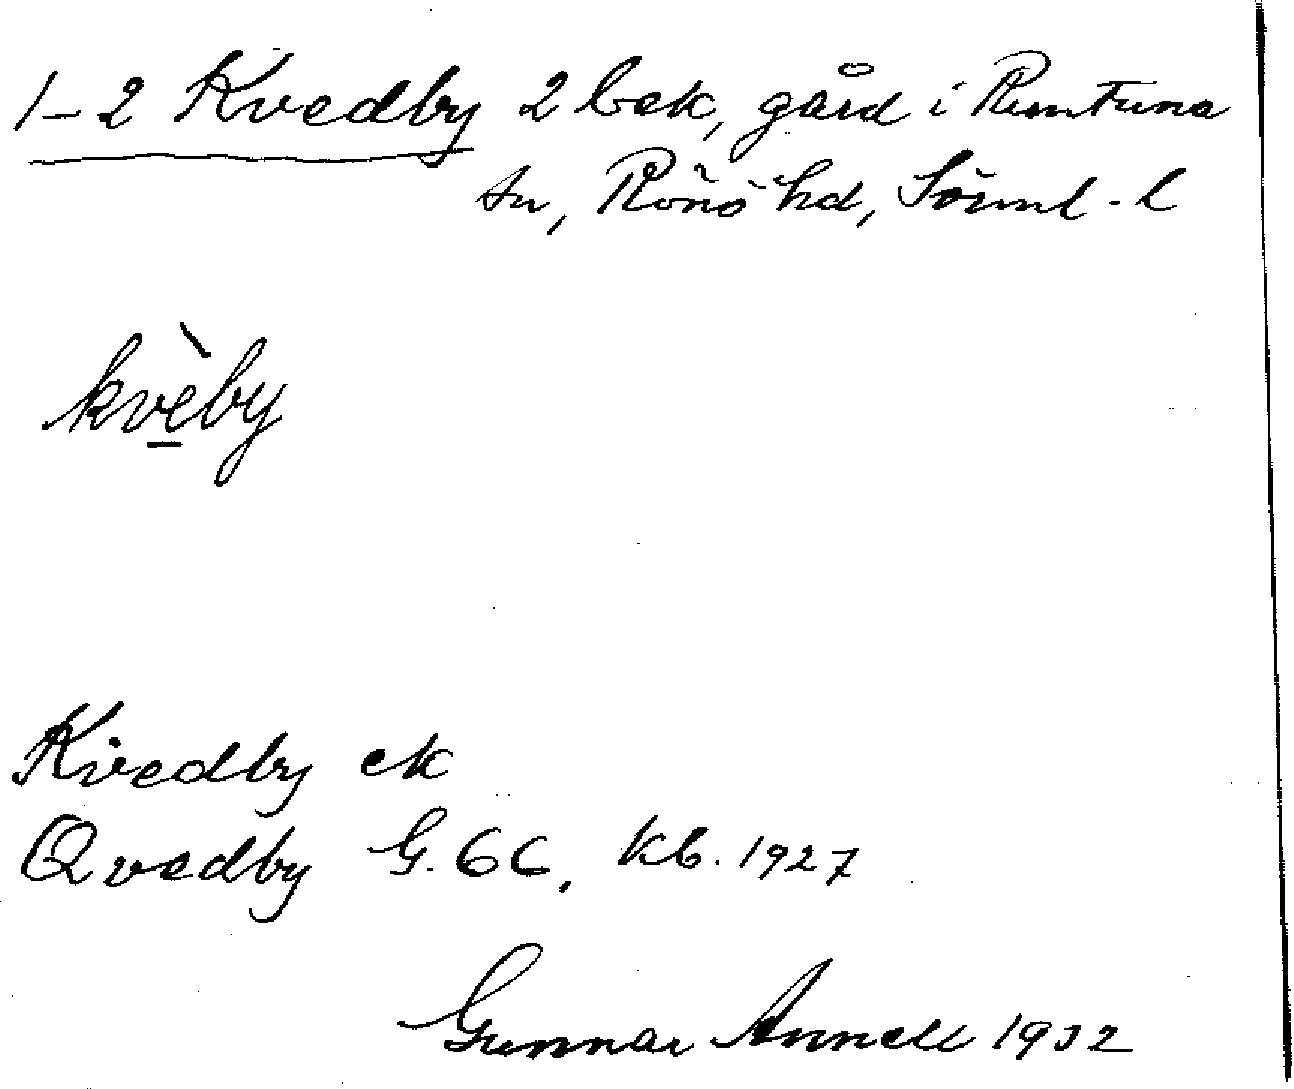 1-2 Kvedby 2 bek, gård i Runtuna
sn, Rönö hd, Söml-l
kvèby
Kvedby ek
Qvedby G. 66, kb. 1927
Gunnar Annell 1932